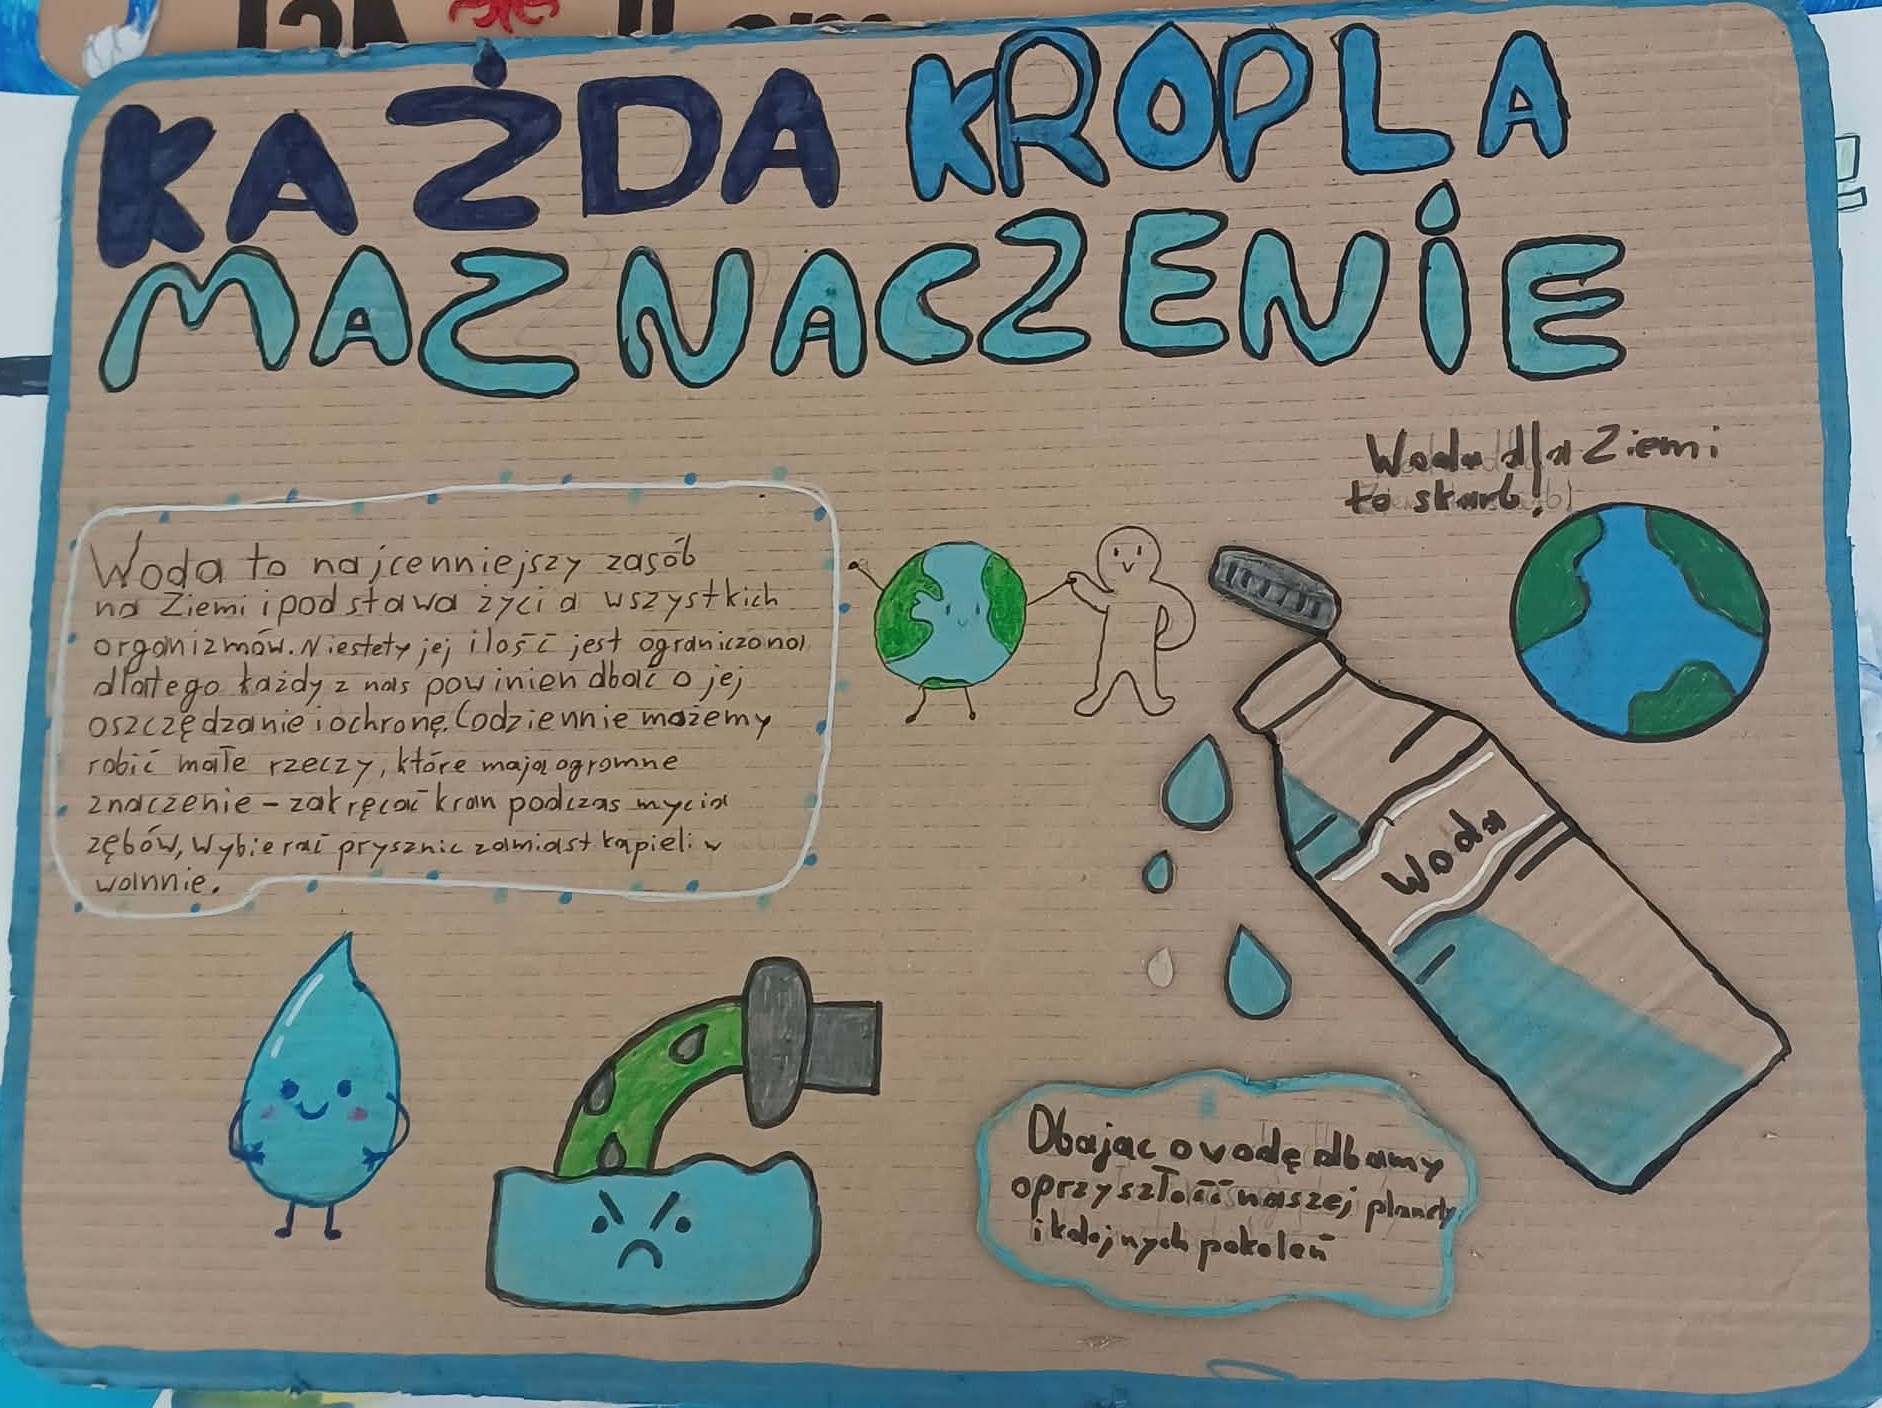 KAŻDA KROPLA
MA ZNACZENIE
Woda dla Ziemi
to skarb!
Woda to najcenniejszy zasób
na Ziemi i podstawa życia wszystkich
organizmów. Niestety jej ilość jest ograniczona,
dlatego każdy z nas powinien dbać o jej
oszczędzanie i ochronę. Codziennie możemy
robić małe rzeczy, które mają ogromne
znaczenie - zakręcać kran podczas mycia
zębów, wybierać prysznic zamiast kąpieli w
wannie.
Woda
Dbając o wodę dbamy
o przyszłość naszej planety
i kolejnych pokoleń